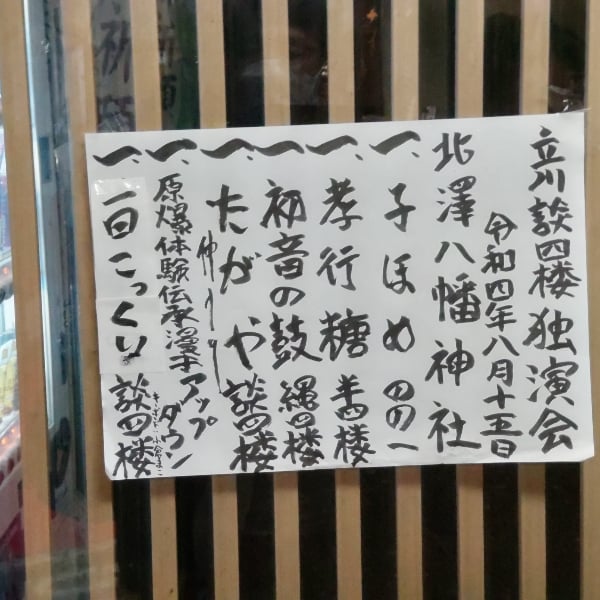 立川談四楼独演会
令和四年八月十五日
北澤八幡神社
一、子ほめ のの一
一、孝行糖 半四楼
一、初音の鼓 縄四楼
一、たがや 談四楼
仲入り
一、原爆体験伝承漫才 アップダウン
一、一日こっくり 談四楼